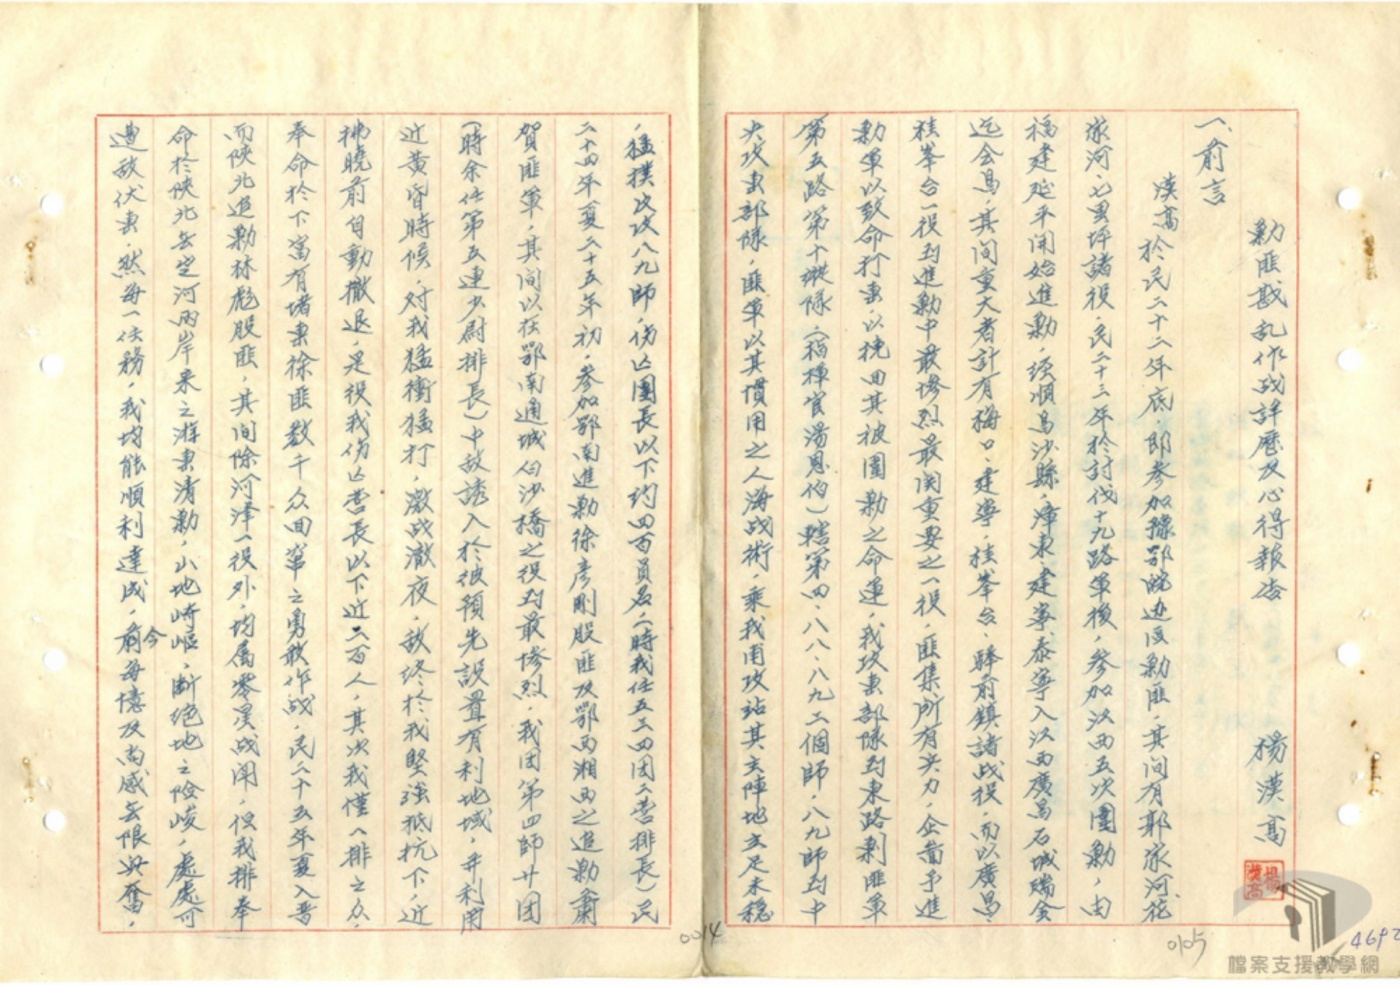 剿匪戡乱作战詳歷及心得報告
楊漢高
一、前言
漢高於民二十二年底，即参加豫鄂皖边区剿匪，其间有郭家河、花
家河、七里坪諸役，民二十三年於討伐十九路軍後，参加江西五次圍剿，由
福建延平開始進剿，经順昌沙縣，漳東建寧泰寧入江西廣昌石城瑞金
迄会昌，其间重大者計有梅口、建寧，桂峯台、驿前鎮諸战役，而以廣昌、
桂峯台一役到進剿中最惨烈最関重要之一役，匪集所有兵力，企啚予進
剿軍以致命打击，以挽回其被圍剿之命運，我攻击部隊到東路剿匪軍
第五路第十縱隊（指揮官湯恩伯）轄第四、八八、八九三個師，八九師到中
央攻击部隊，匪軍以其慣用之人海战術，乘我甫攻站其主陣地立足未穩
，猛撲攻八九師，伤亡團長以下约四百員名，（時我任五三四团二营排長）民
二十四年夏二十五年初，参加鄂南進剿徐彦剛股匪及鄂西湘西之追剿蕭
賀匪軍，其间以在鄂南通城白沙橋之役到最惨烈，我团第四師廿团
（時余任第五連少尉排長）中敌誘入於彼預先設置有利地域，并利用
近黄昏時候，对我猛衝猛打，激战澈夜，敌终於我堅强抵抗下，近
拂曉前自動撤退，是役我伤亡营長以下近二百人，其次我僅一排之众，
奉命於下富有堵击徐匪数千众回竄之勇敢作战，民二十五年夏入晋
而陕北追剿林彪股匪，其间除河津一役外，均属零星战闘，但我排奉
命於陕北無定河両岸米之游击清剿，山地崎嶇，断绝地之险峻，處處可
遭敌伏击，然每一任務，我均能順利達成，今前每憶及尚感無限兴奮，
0014
0105
469
檔案支援教學網